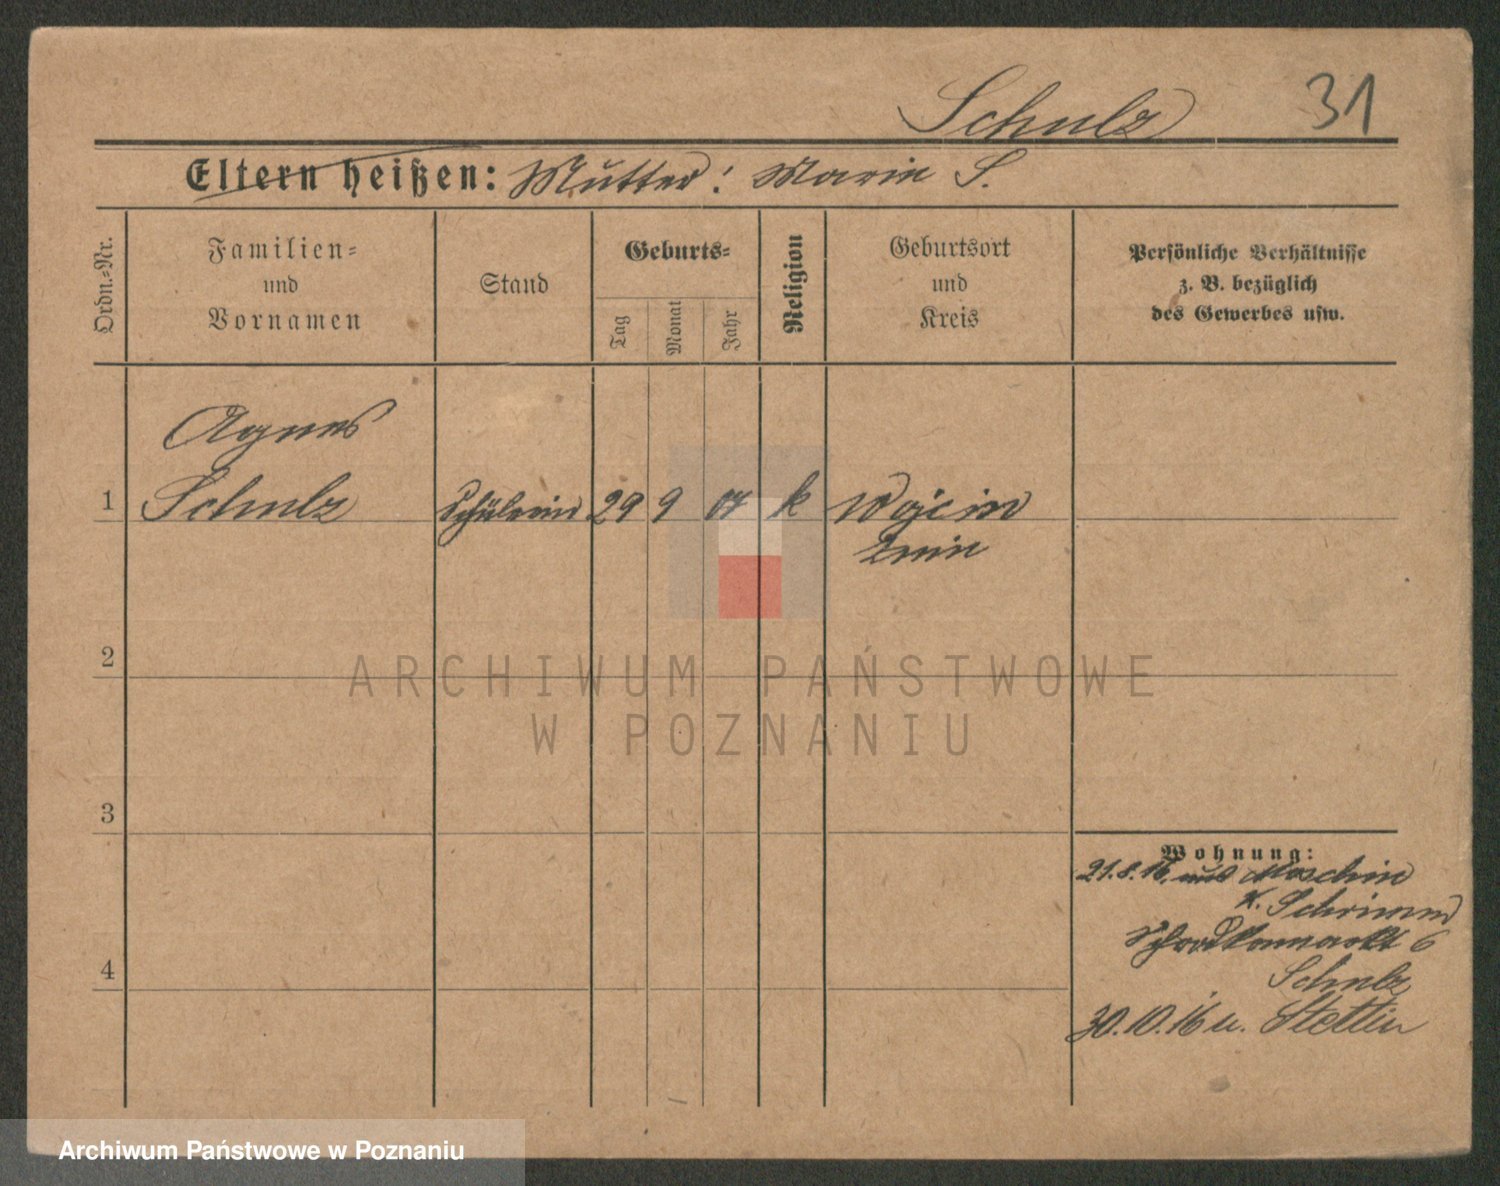 Schulz 31
Eltern heißen: Mutter: Marie S.
Ordn.-Nr.
Familien-
und
Vornamen
Stand
Geburts-
Tag
Monat
Jahr
Religion
Geburtsort
und
Kreis
Persönliche Verhältnisse
z. B. bezüglich
des Gewerbes usw.
Agnes
1 Schulz Schülerin 29 9 07 k Wojcin
Znin
2
3
4
Wohnung:
21.8.16. aus Moschin
K. Schrimm
6
Schulz
30.10.16 u. Stettin
ARCHIWUM PAŃSTWOWE
W POZNANIU
Archiwum Państwowe w Poznaniu